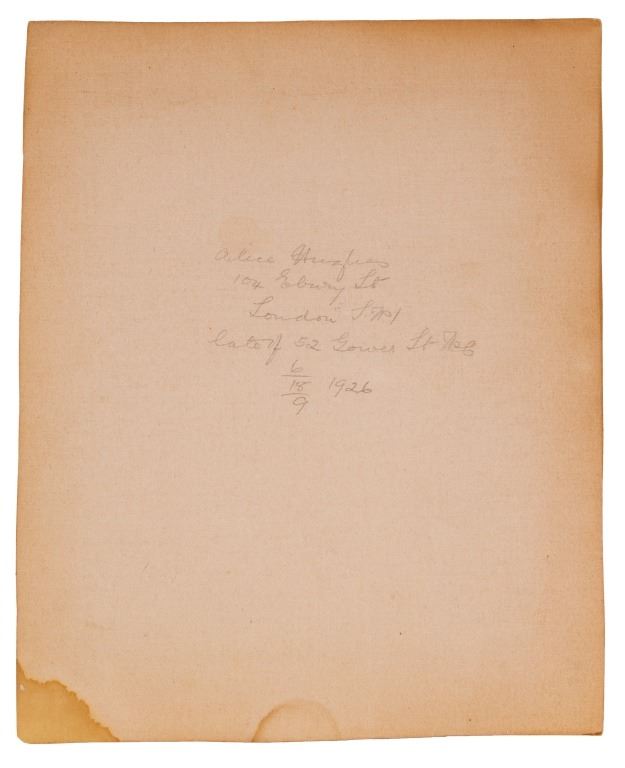 Alice Hughes
104 Ebury St
London S.W1
late of 52 Gower St WC
6
18 1926
9